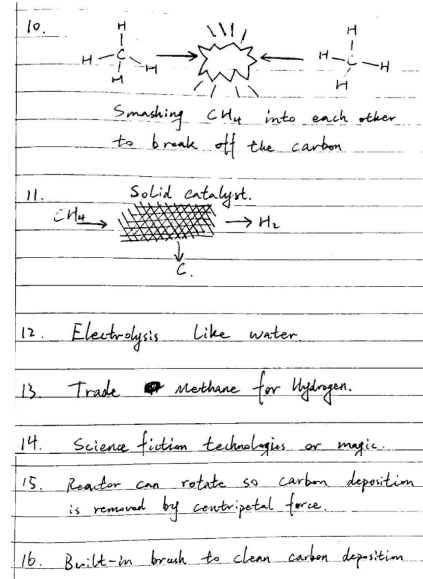 10.
H H
H C H H C H
H H
Smashing CH4 into each other
to break off the carbon
11. Solid catalyst.
CH4 → → H2
↓
C.
12. Electrolysis like water.
13. Trade Methane for Hydrogen.
14. Science fiction technologies or magic.
15. Reactor can rotate so carbon deposition
is removed by centripetal force.
16. Built-in brush to clean carbon deposition